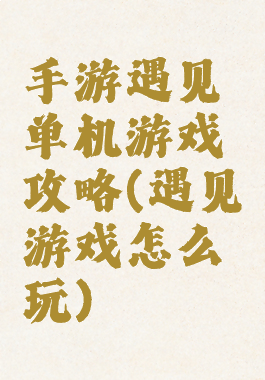 手游遇见
单机游戏
攻略(遇见
游戏怎么
玩)